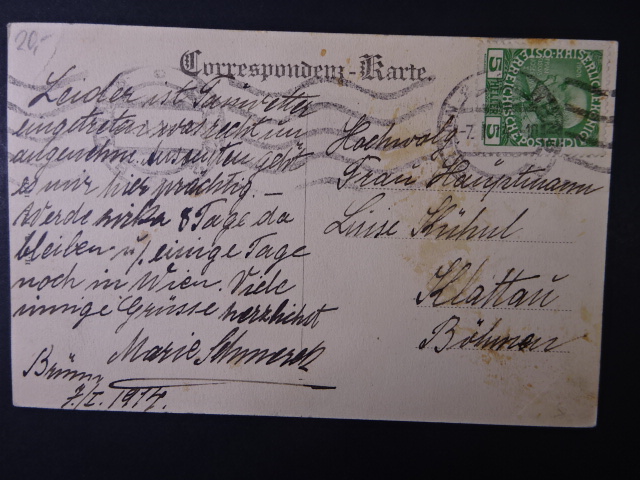 20,-
Correspondenz-Karte.
Leider ist Tauwetter
eingetreten was recht un
angenehm. Ansonsten geht
es mir hier prächtig. –
Werde zirka 8 Tage da
bleiben u. einige Tage
noch in Wien. Viele
innige Grüsse herzlichst
Marie
Brünn
7./I. 1914.
Hochwolg.
Frau Hauptmann
Luise Kühnl
Klattau
Böhmen
5 5
HELLER